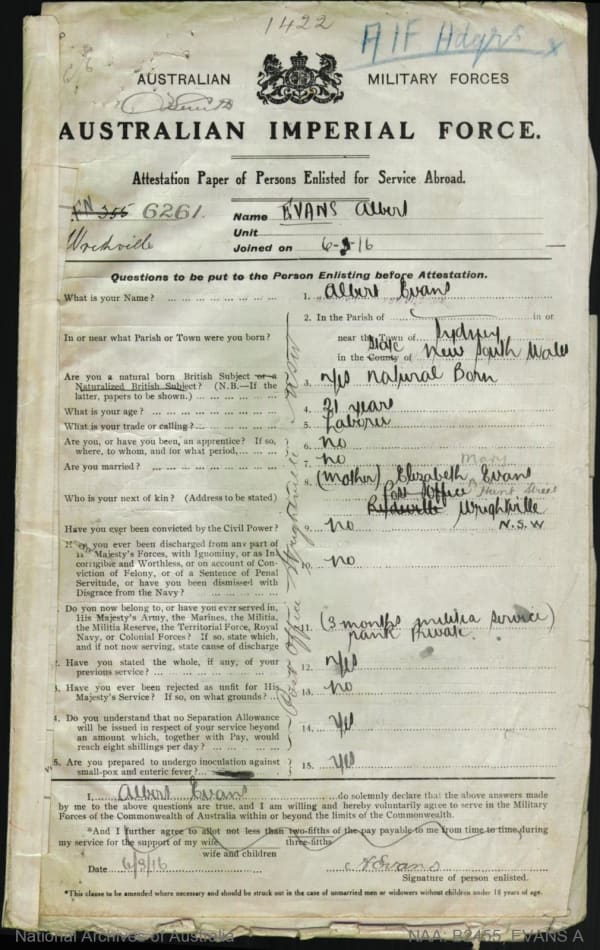 1422
AIF Hdqrs x
AUSTRALIAN MILITARY FORCES
AUSTRALIAN IMPERIAL FORCE.
Attestation Paper of Persons Enlisted for Service Abroad.
FN 355 6261. Name EVANS Albert
Wrightville Unit
Joined on 6-3-16
Questions to be put to the Person Enlisting before Attestation.
What is your Name? ... 1. Albert Evans
2. In the Parish of in or
In or near what Parish or Town were you born? near the Town of Sydney
in the County of State New South Wales
Are you a natural born British Subject or a
Naturalized British Subject? (N.B.—If the 3. Yes Natural Born
latter, papers to be shown.)
What is your age? 4. 21 years
What is your trade or calling? 5. Laborer
Are you, or have you been, an apprentice? If so, 6. no
where, to whom, and for what period,
Are you married? 7. no
Mary
8. (Mother) Elizabeth Evans
Who is your next of kin? (Address to be stated) Post Office Hunt Street
Wrightville
N.S.W
Have you ever been convicted by the Civil Power? 9. no
you ever been discharged from any part of
Majesty's Forces, with Ignominy, or as In-
corrigible and Worthless, or on account of Con- 10. no
viction of Felony, or of a Sentence of Penal
Servitude, or have you been dismissed with
Disgrace from the Navy?
Do you now belong to, or have you ever served in,
His Majesty's Army, the Marines, the Militia,
the Militia Reserve, the Territorial Force, Royal 11. (3 months militia service)
Navy, or Colonial Forces? If so, state which, rank Private.
and if not now serving, state cause of discharge
Have you stated the whole, if any, of your 12. Yes
previous service?
Have you ever been rejected as unfit for His 13. no
Majesty's Service? If so, on what grounds?
Do you understand that no Separation Allowance
will be issued in respect of your service beyond 14. Yes
an amount which, together with Pay, would
reach eight shillings per day?
5. Are you prepared to undergo inoculation against 15. Yes
small-pox and enteric fever?
Post Office Wrightville NSW
I, Albert Evans do solemnly declare that the above answers made
by me to the above questions are true, and I am willing and hereby voluntarily agree to serve in the Military
Forces of the Commonwealth of Australia within or beyond the limits of the Commonwealth.
*And I further agree to allot not less than two-fifths of the pay payable to me from time to time during
three-fifths
my service for the support of my wife
wife and children
Date 6/3/16 A Evans
Signature of person enlisted.
*This clause to be amended where necessary and should be struck out in the case of unmarried men or widowers without children under 18 years of age.
National Archives of Australia NAA: B2455, EVANS A